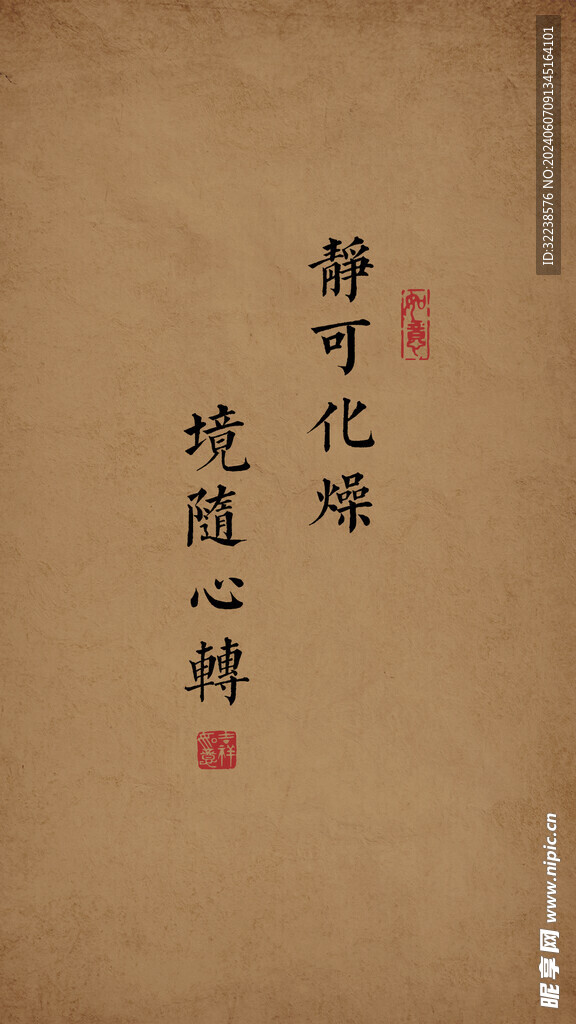 靜可化燥
境隨心轉
如意
吉祥如意
ID:32238576 NO:20240607091345164101
昵享网 www.nipic.cn